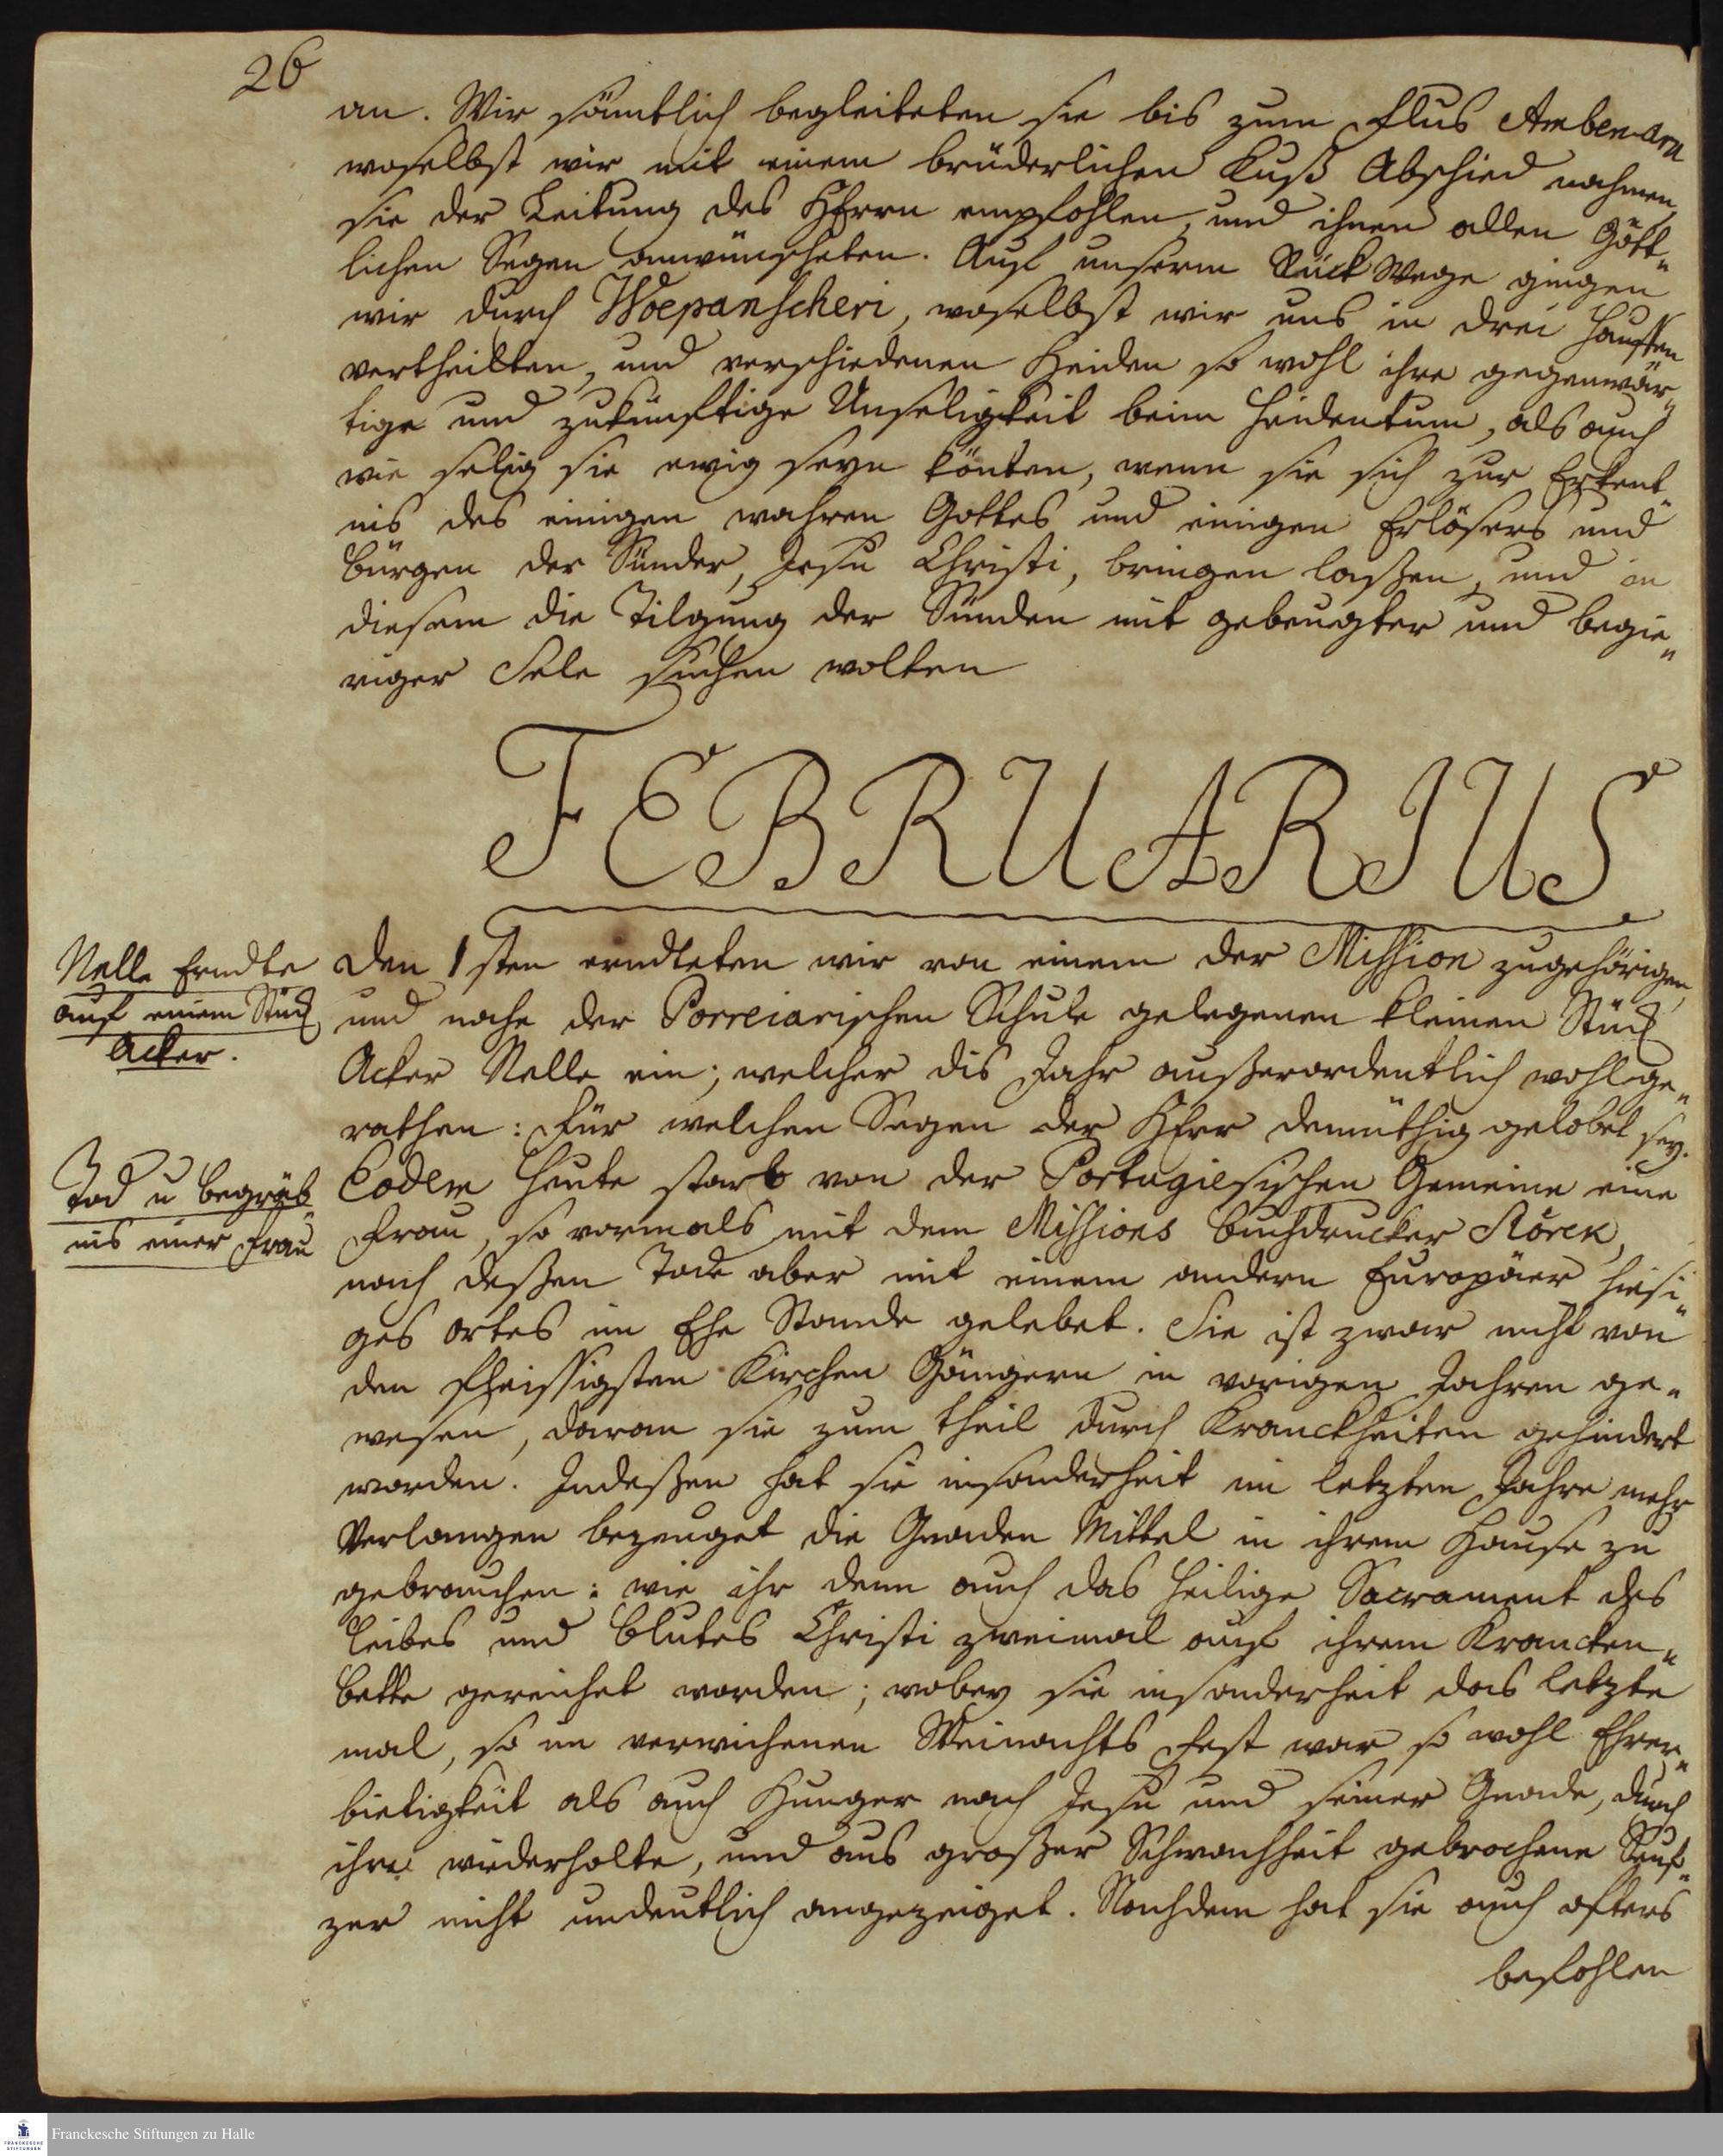 26
an. Wir sämtlich begleiteten sie bis zum Flus Ambenaru
woselbst wir mit einem brüderlichen Kuß Abschied nahmen,
sie der Leitung des HErrn empfohlen, und ihnen allen Gött„
lichen Segen anwünscheten. Auf unserm Rück Wege gingen
wir durch Woepanscheri, woselbst wir uns in drei Hauffen
vertheilten, und verschiedenen Heiden so wohl ihre gegenwär„
tige und zukünftige Unseligkeit beim Heidentum, als auch
wie selig sie ewig seyn könten, wenn sie sich zur Erkent„
nis des einigen wahren Gottes und einigen Erlösers und
Bürgen der Sünder, Jesu Christi, bringen laßen, und in
diesem die Tilgung der Sünden mit gebeugter und begie„
riger Sele suchen wolten
FEBRUARIUS
Nelle Erndte
auf einem Stück
Acker.
Den 1sten erndteten wir von einem der Mission zugehörigen,
und nahe der Porreiarischen Schule gelegenen kleinen Stück
Acker Nelle ein; welcher dis Jahr außerordentlich wohl ge„
rathen: für welchen Segen der HErr demüthig gelobet sey.
Tod u Begräb„
nis einer Frau
Eodem Heute starb von der Portugiesischen Gemeine eine
Frau, so vormals mit dem Missions Buchdrucker Störck,
nach deßen Tode aber mit einem andern Europäer hiesi„
ges Ortes im Ehe Stande gelebet. Sie ist zwar nicht von
den fleissigsten Kirchen Gängern in vorigen Jahren ge„
wesen, daran sie zum theil durch Kranckheiten gehindert
worden. Indeßen hat sie insonderheit im letzten Jahre mehr
Verlangen bezeuget die Gnaden Mittel in ihrem Hause zu
gebrauchen: wie ihr denn auch das heilige Sacrament des
Leibes und Blutes Christi zweimal auf ihrem Krancken„
bette gereichet worden; wobey sie insonderheit das letzte
mal, so im verwichenen Weinachts Fest war so wohl Ehrer„
bietigkeit als auch Hunger nach Jesu und seiner Gnade, durch
ihre wiederholte, und aus großer Schwachheit gebrochene Seuf„
zer nicht undeutlich angezeiget. Nachdem hat sie auch ofters
befohlen
Franckesche Stiftungen zu Halle